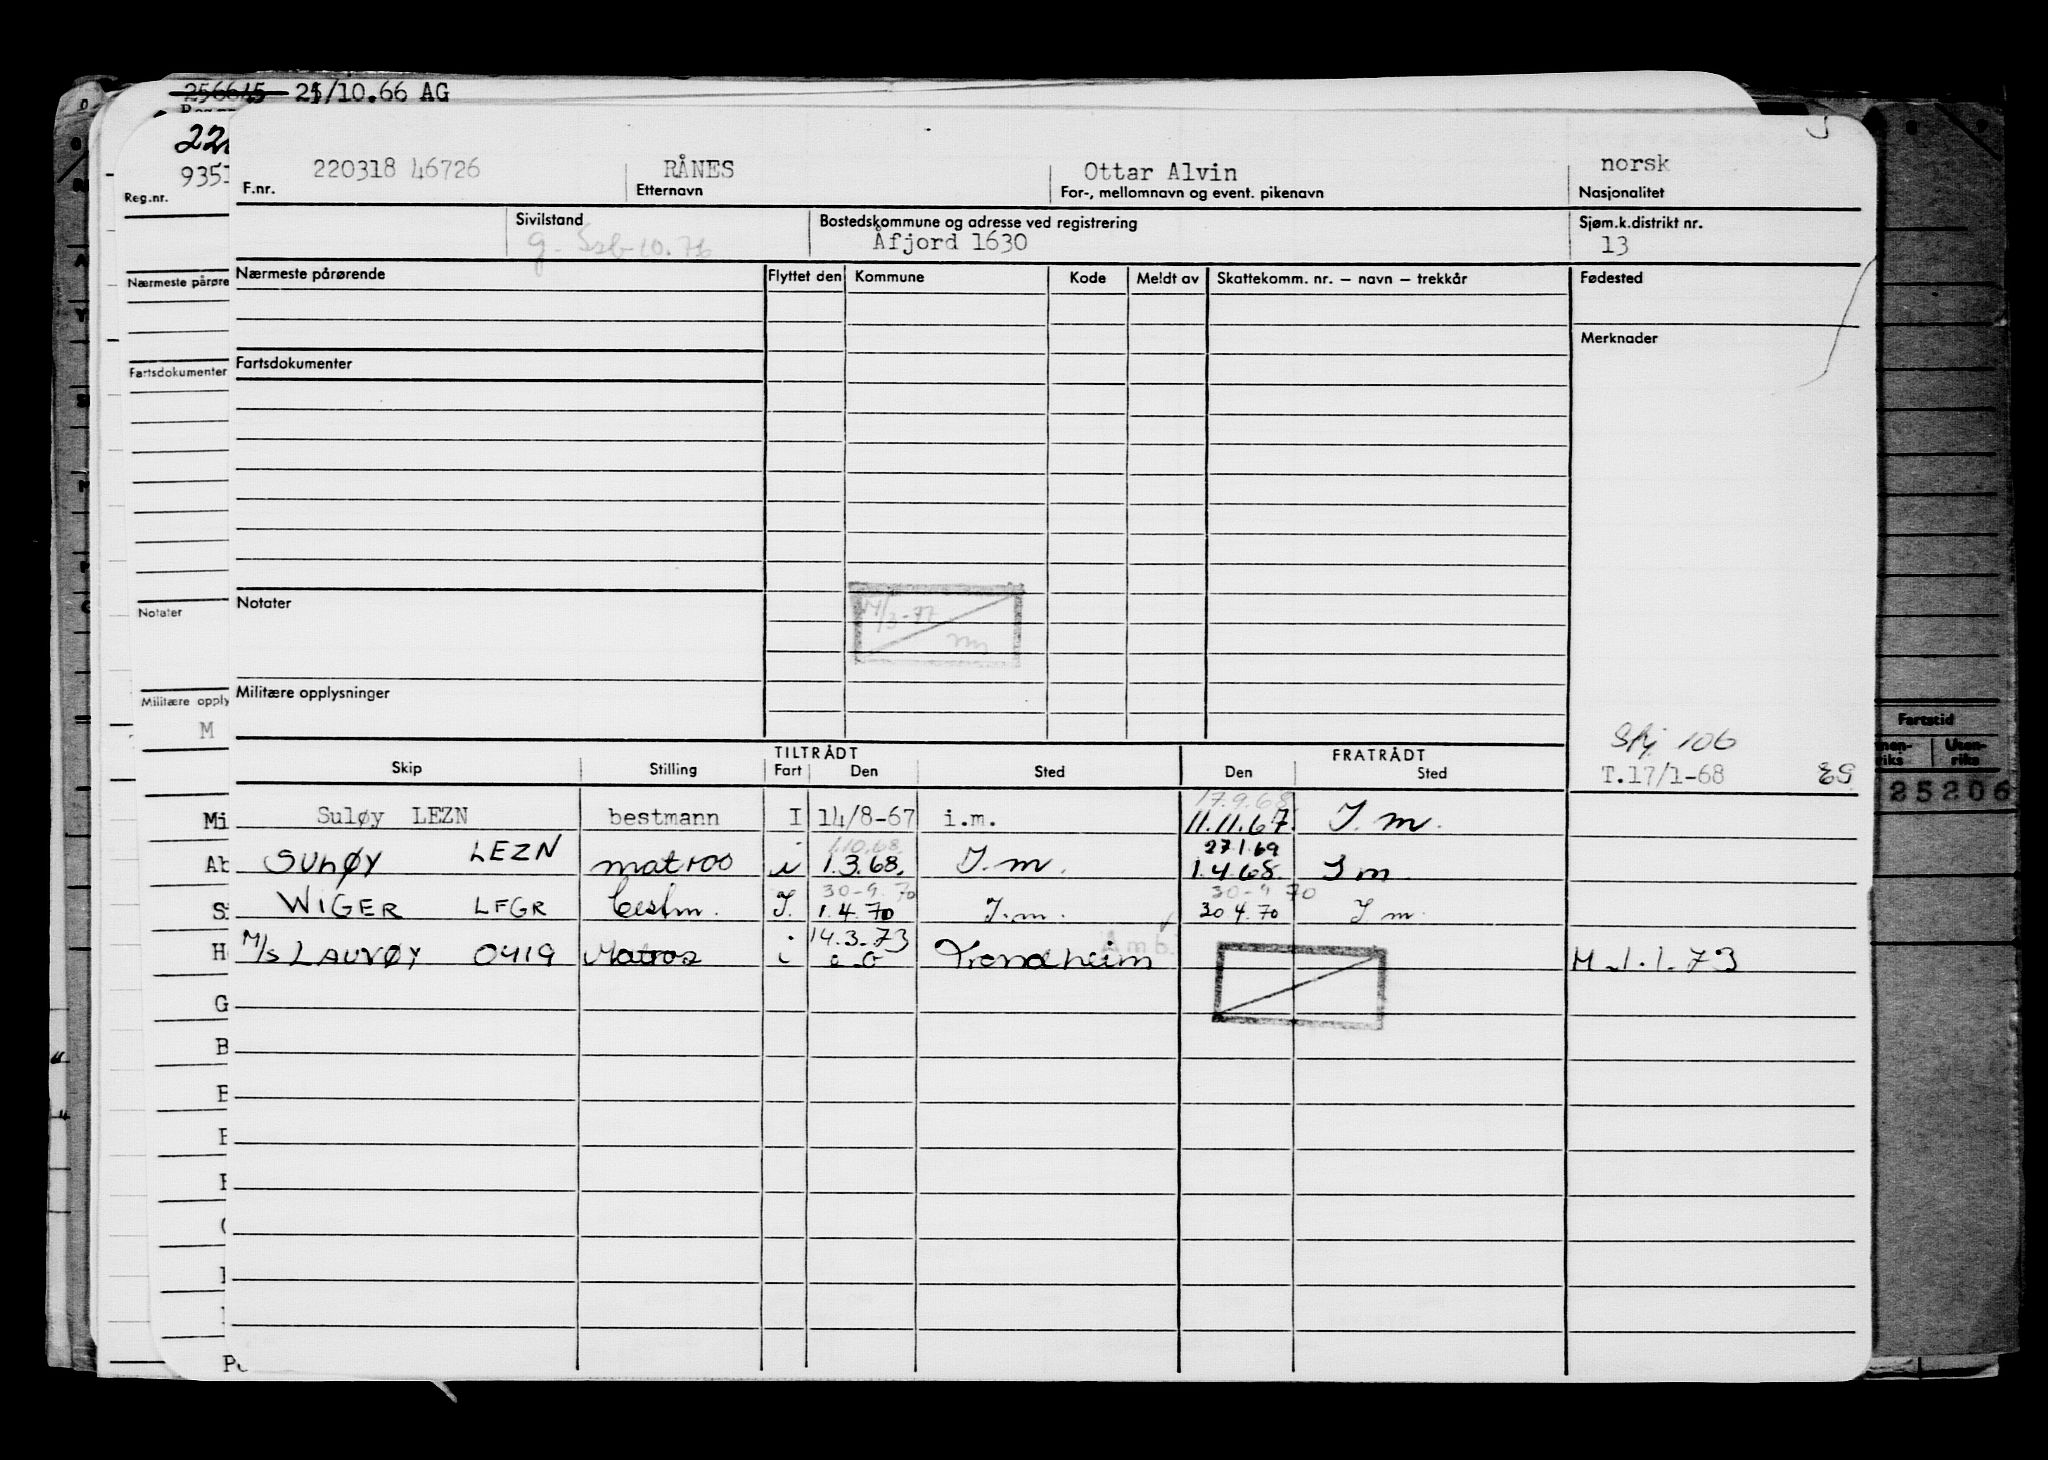 25/10.66 AG
9351
Reg.nr.
220318 46726 RÅNES Ottar Alvin norsk
F.nr. Etternavn For-, mellomnavn og event. pikenavn Nasjonalitet
Sivilstand Bostedskommune og adresse ved registrering Sjøm.k.distrikt nr.
g. 10.76 Åfjord 1630 13
Nærmeste pårørende Flyttet den Kommune Kode Meldt av Skattekomm. nr. – navn – trekkår Fødested
Nærmeste pårøre
Merknader
Fartsdokumenter Fartsdokumenter
Notater Notater
Militære opply Militære opplysninger
M
Fartstid
TILTRÅDT FRATRÅDT
Skip Stilling Fart Den Sted Den Sted
106
T.17/1-68
25206
17.9.68.
Mi Suløy LEZN bestmann I 14/8-67 i.m. 11.11.67. I.m.
1.10.68. 27.1.69
Ab SULØY LEZN matros i 1.3.68. I.m. 1.4.68. I m
30-9.70 30-9 70
WIGER LFGR bestm. I. 1.4.70 I.m. 30 4.70 I m.
14.3.73
H M/S LAUVØY 0419 Matros i Trondheim M 1.1.73
G
B